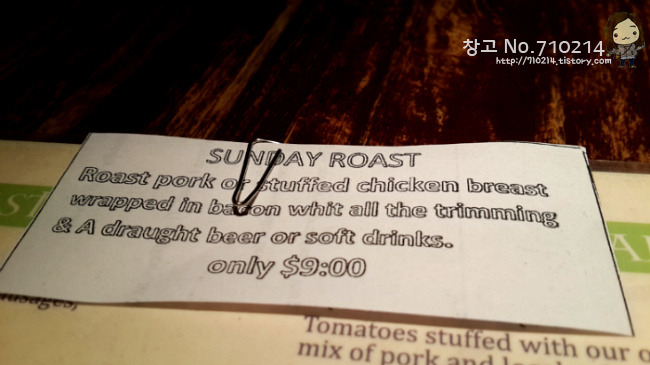 창고 No.710214
http://710214.tistory.com
SUNDAY ROAST
Roast pork or stuffed chicken breast
wrapped in bacon whit all the trimming
& A draught beer or soft drinks.
only $9:00
Tomatoes stuffed with our
mix of pork and